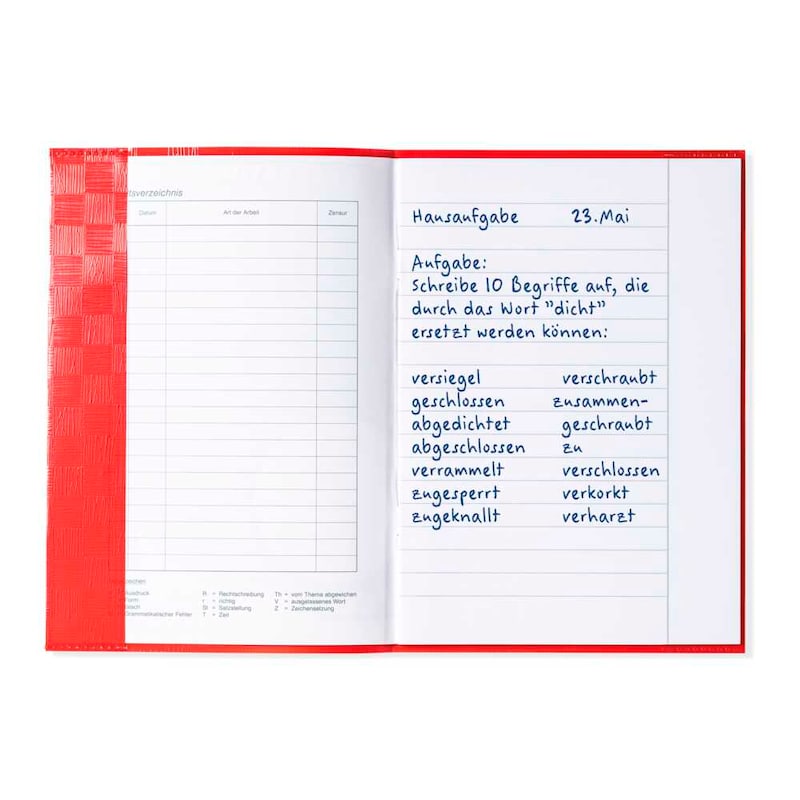 tsverzeichnis
Datum Art der Arbeit Zensur
R = Rechtschreibung Th = vom Thema abgewichen
r = richtig V = ausgelassenes Wort
St = Satzstellung Z = Zeichensetzung
Grammatikalischer Fehler T = Zeit
Hausaufgabe 23.Mai
Aufgabe:
Schreibe 10 Begriffe auf, die
durch das Wort "dicht"
ersetzt werden können:
versiegel verschraubt
geschlossen zusammen-
abgedichtet geschraubt
abgeschlossen zu
verrammelt verschlossen
zugesperrt verkorkt
zugeknallt verharzt